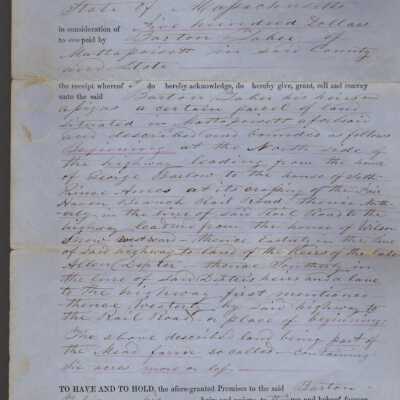 State of Massachusetts
in consideration of Five hundred Dollars
to me paid by Barton Taber of
Mattapoisett in said County
and State
the receipt whereof I do hereby acknowledge, do hereby give, grant, sell and convey
unto the said Barton Taber his heirs &
assigns a certain parcel of land
situated in Mattapoisett aforesaid
and described and bounded as follows
Beginning at the North side of
the highway leading from the house
of George Barlow to the house of
Prince Ames at its crossing of the Fair
Haven Branch Rail Road thence
in the line of said Rail Road to the
highway leading from the house of Wilson
Snow westward - thence Easterly in the line
of said highway to land of the Heirs of the late
Dexter - thence Southerly in
the line of said Dexter's heirs and a lane
to the highway first mentioned
thence westerly by said highway to
the Rail Road or place of beginning.
The above described land being part of
the Mead farm so called - containing
six acres more or less -
TO HAVE AND TO HOLD, the afore-granted Premises to the said Barton
heirs and assigns, to use and behoof forever